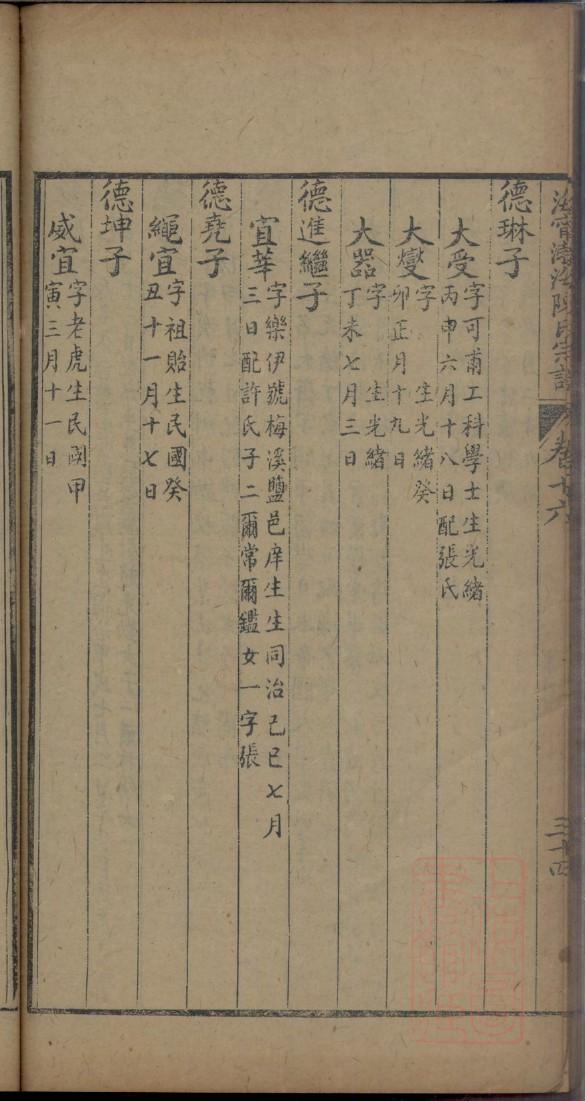 海寧渤海陳氏宗譜 卷十六 三十四
德琳子
大受 字可甫工科學士生光緒
丙申六月十八日配張氏
大燮 字 生光緒癸
卯正月十九日
大器 字 生光緒
丁未七月三日
德進繼子
宜華 字樂伊號梅溪鹽邑庠生生同治己巳七月
三日配許氏子二爾常爾鑑女一字張
德堯子
繩宜 字祖貽生民國癸
丑十一月十七日
德坤子
威宜 字老虎生民國甲
寅三月十一日